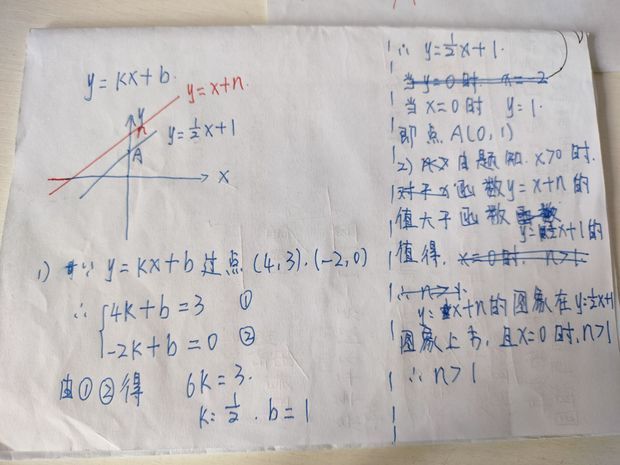 y=kx+b.
y=x+n
y
n
y=½x+1
A
x
1) ∵ y=kx+b 过点 (4,3).(-2,0)
∴ {4k+b=3 ①
-2k+b=0 ②
由①②得 6k=3.
k=½.b=1
∴ y=½x+1.
当y=0时 x=-2
当x=0时 y=1.
即点A(0,1)
2) 由题知.x>0时.
对于x函数y=x+n的
值大于函数
y=½x+1的
值得. x=0时. n>1.
∴n>1.
y=x+n的图象在y=½x+1
图象上方,且x=0时,n>1
∴n>1